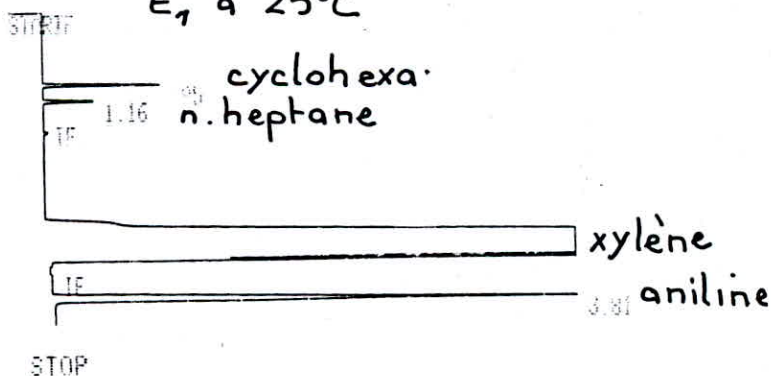 E₁ à 25°C
cyclohexa.
1.16 n.heptane
IF
xylène
IF
3.81 aniline
STOP